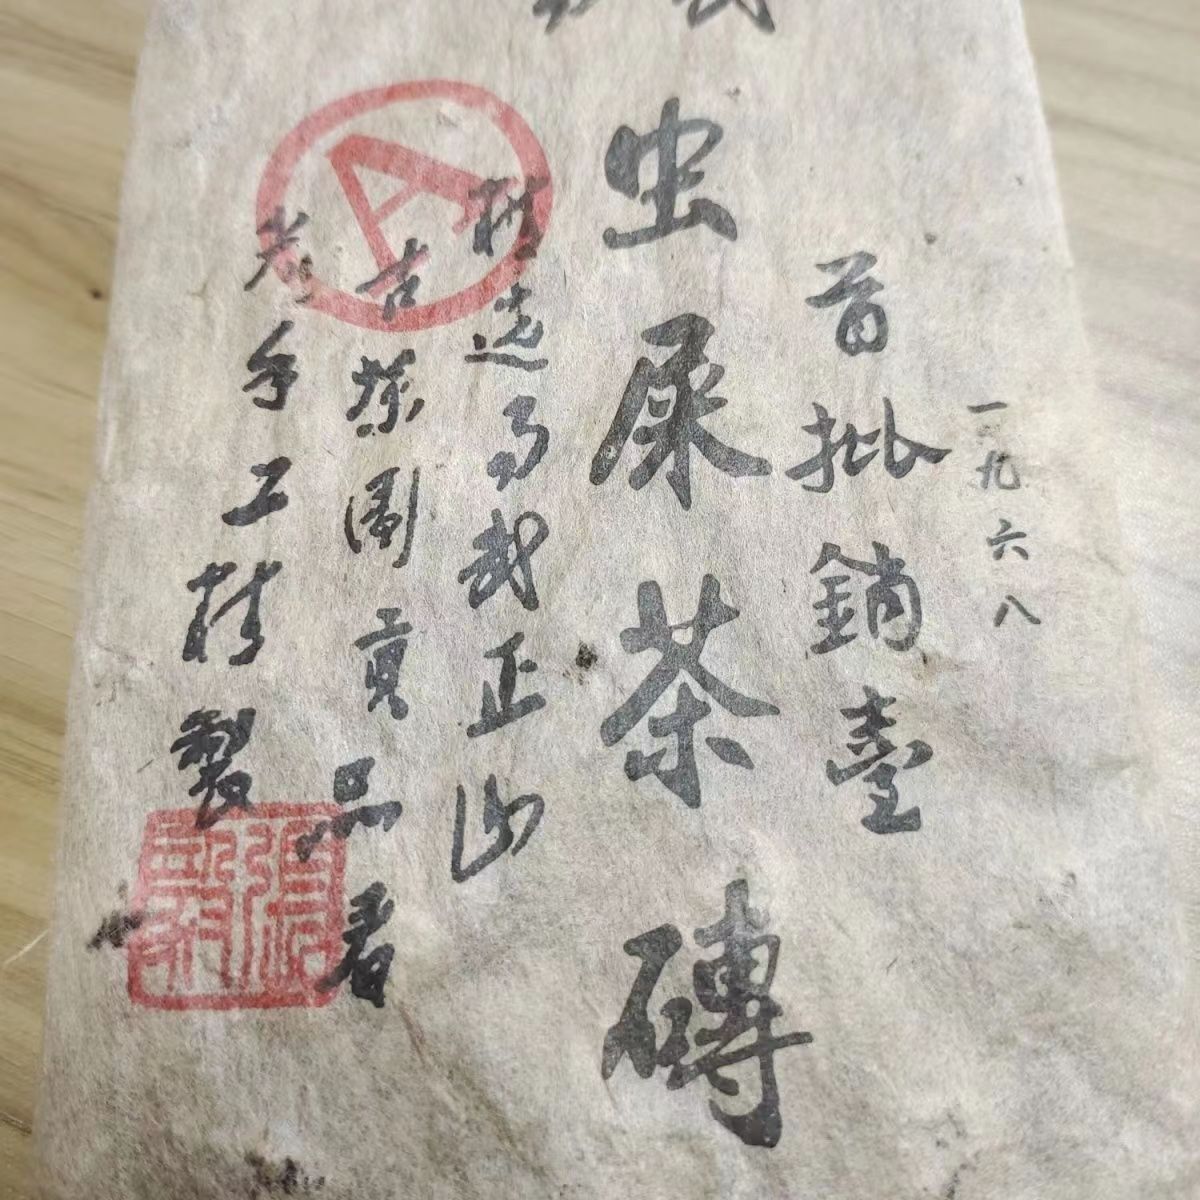 一九六八
首批銷臺
虫屎茶磚
精选易武正山
古茶園貢品春
老手工精製
A